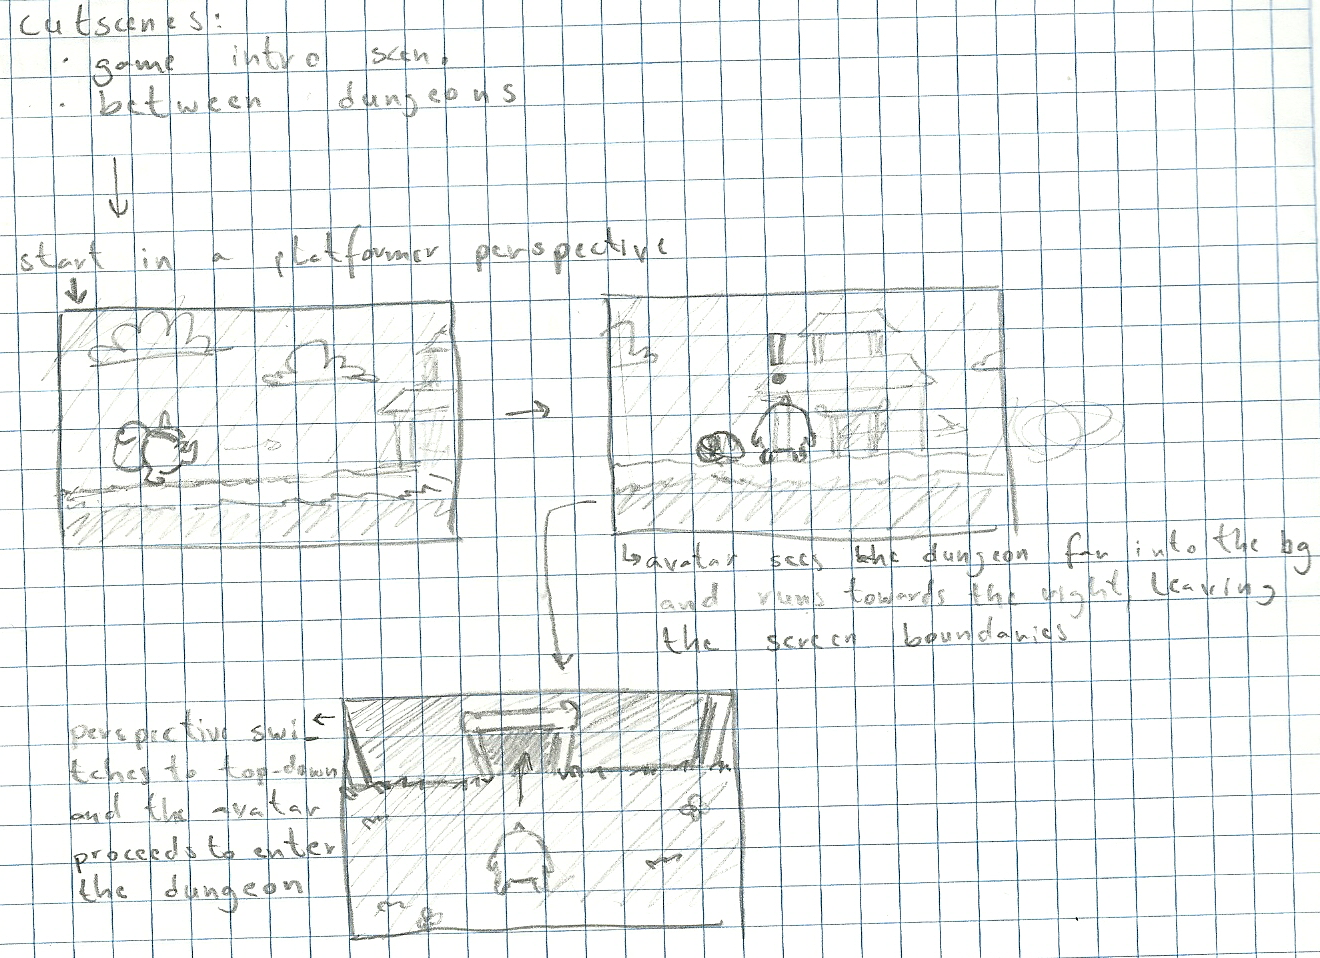 cutscenes:
· game intro scen.
· between dungeons
start in a platformer perspective
↳avatar sees the dungeon far into the bg
and runs towards the right, leaving
the screen boundaries
perspective swi-
tches to top-down
and the avatar
proceeds to enter
the dungeon